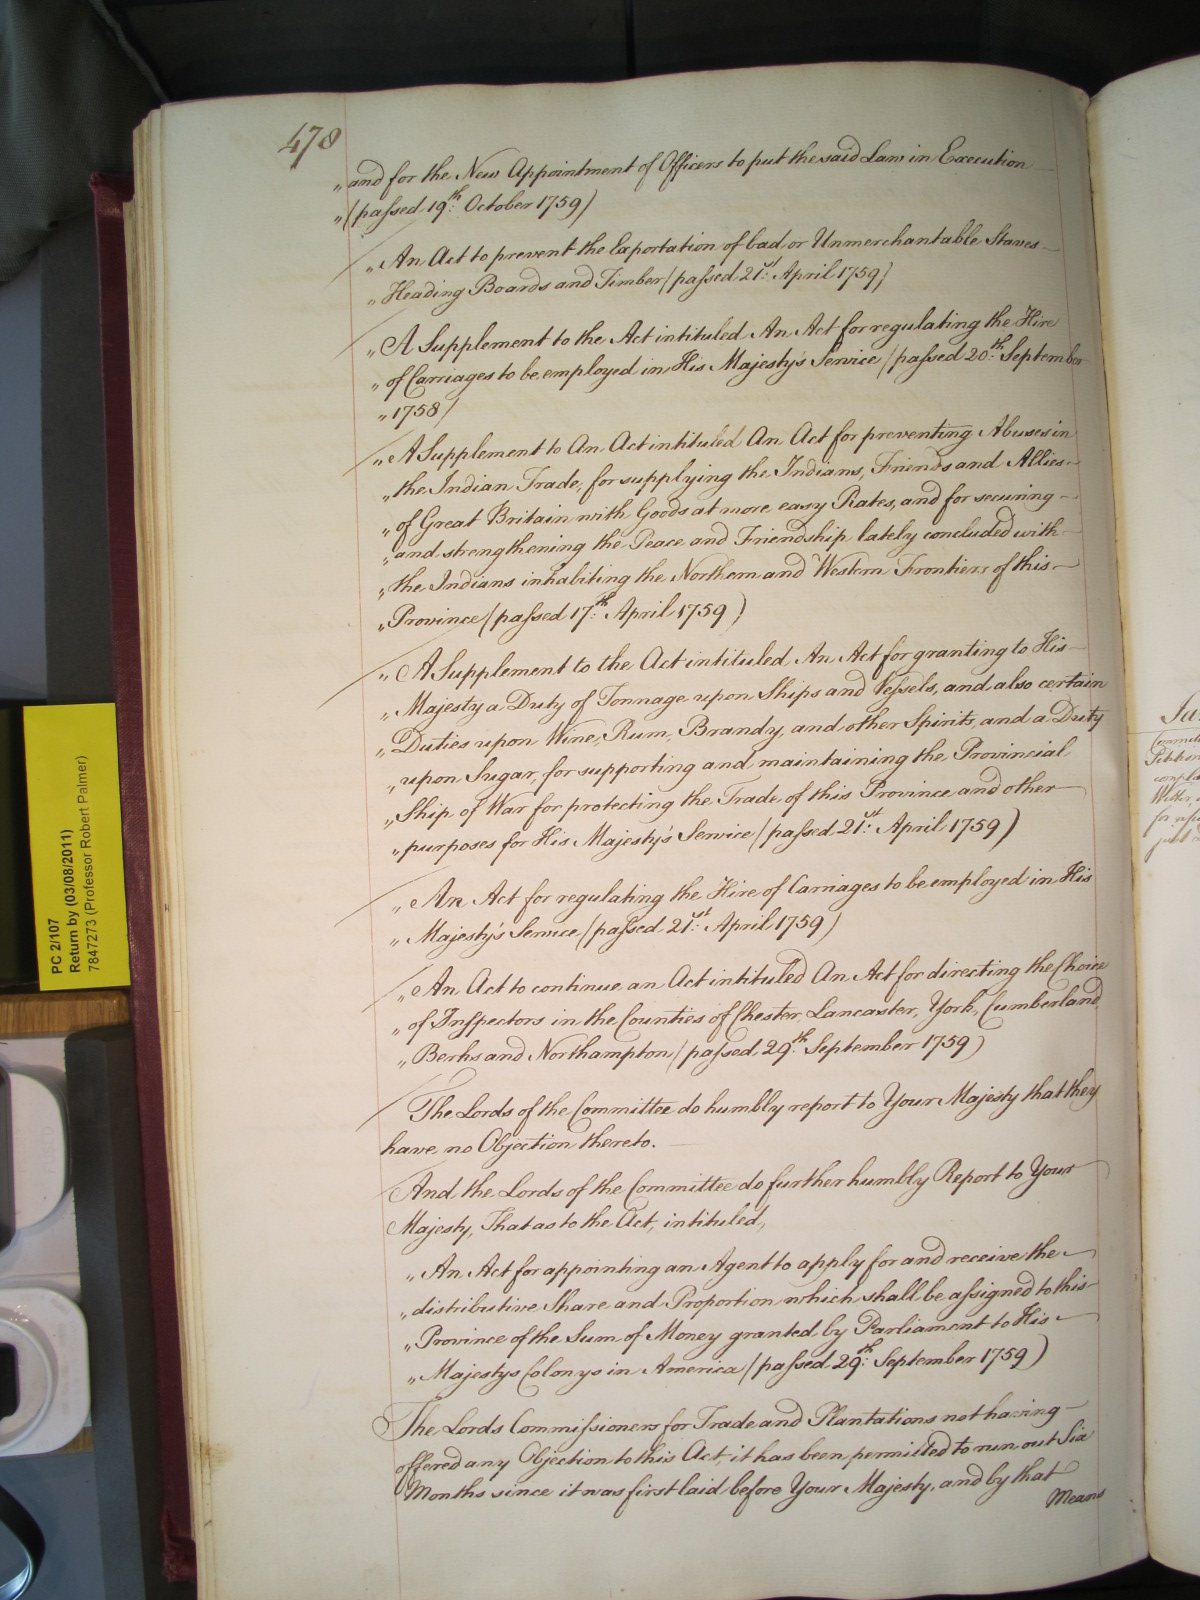 478
„and for the New Appointment of Officers to put the said Law in Execution
„(passed 19th: October 1759)
„An Act to prevent the Exportation of bad or Unmerchantable Staves
„Heading Boards and Timber (passed 21st: April 1759)
„A Supplement to the Act intituled An Act for regulating the Hire
„of Carriages to be employed in His Majesty's Service (passed 20th: September
„1758)
„A Supplement to An Act intituled An Act for preventing Abuses in
„the Indian Trade, for supplying the Indians, Friends and Allies
„of Great Britain with Goods at more easy Rates, and for securing
„and strengthening the Peace and Friendship lately concluded with
„the Indians inhabiting the Northern and Western Frontiers of this
„Province (passed 17th: April 1759)
„A Supplement to the Act intituled An Act for granting to His
„Majesty a Duty of Tonnage upon Ships and Vessels, and also certain
„Duties upon Wine, Rum, Brandy, and other Spirits, and a Duty
„upon Sugar, for supporting and maintaining the Provincial
„Ship of War for protecting the Trade of this Province and other
„purposes for His Majesty's Service (passed 21st: April 1759)
„An Act for regulating the Hire of Carriages to be employed in His
„Majesty's Service (passed 21st: April 1759)
„An Act to continue an Act intituled An Act for directing the Choice
„of Inspectors in the Counties of Chester, Lancaster, York, Cumberland,
„Berks and Northampton (passed 29th: September 1759)
The Lords of the Committee do humbly report to Your Majesty that they
have no Objection thereto.
And the Lords of the Committee do further humbly Report to Your
Majesty, That as to the Act, intituled,
„An Act for appointing an Agent to apply for and receive the
„distributive Share and Proportion which shall be assigned to this
„Province of the Sum of Money granted by Parliament to His
„Majestys Colonys in America (passed 29th: September 1759)
The Lords Commissioners for Trade and Plantations not having
offered any Objection to this Act, it has been permitted to run out Six
Months since it was first laid before Your Majesty, and by that
Means
PC 2/107
Return by (03/08/2011)
7847273 (Professor Robert Palmer)